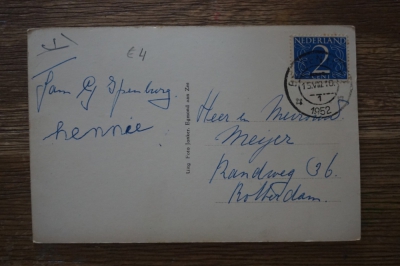 €4
Fam G Ipenburg.
Hennie
Uitg. Foto Jantzen, Egmond aan Zee
NEDERLAND
2
1952
Heer en Mevrouw
Meijer
Randweg 36b.
Rotterdam.